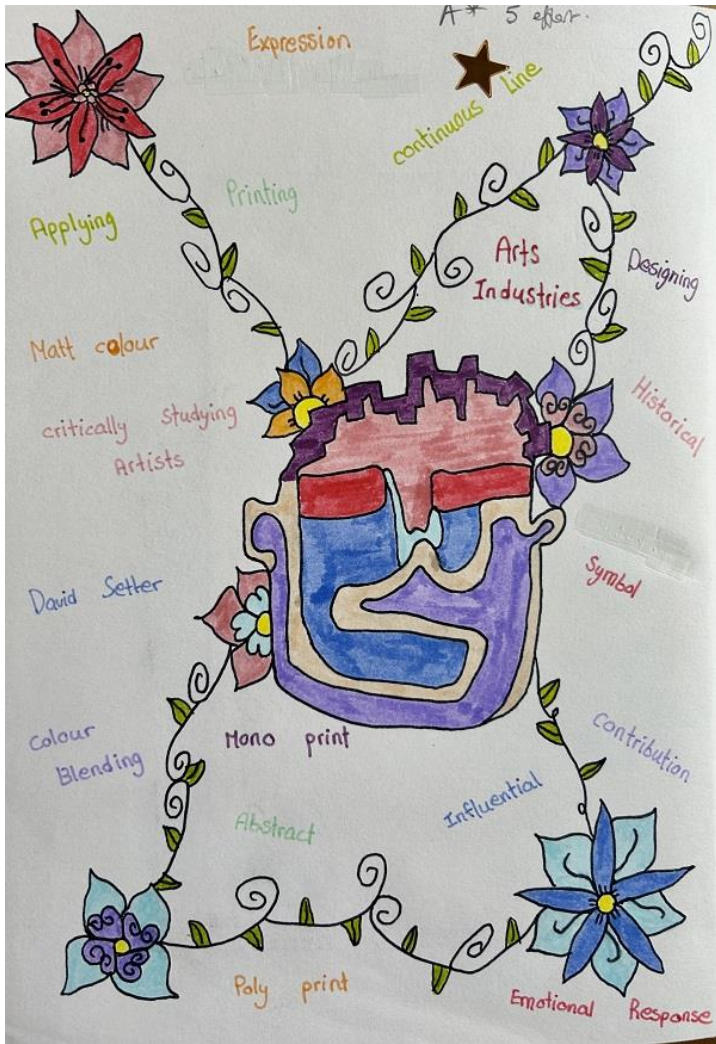 A* 5 effort.
Expression
continuous Line
Printing
Applying
Arts
Industries
Designing
Matt colour
critically studying
Artists
Historical
David Setter
Symbol
Colour
Blending
Mono print
contribution
Influential
Abstract
Poly print
Emotional Response